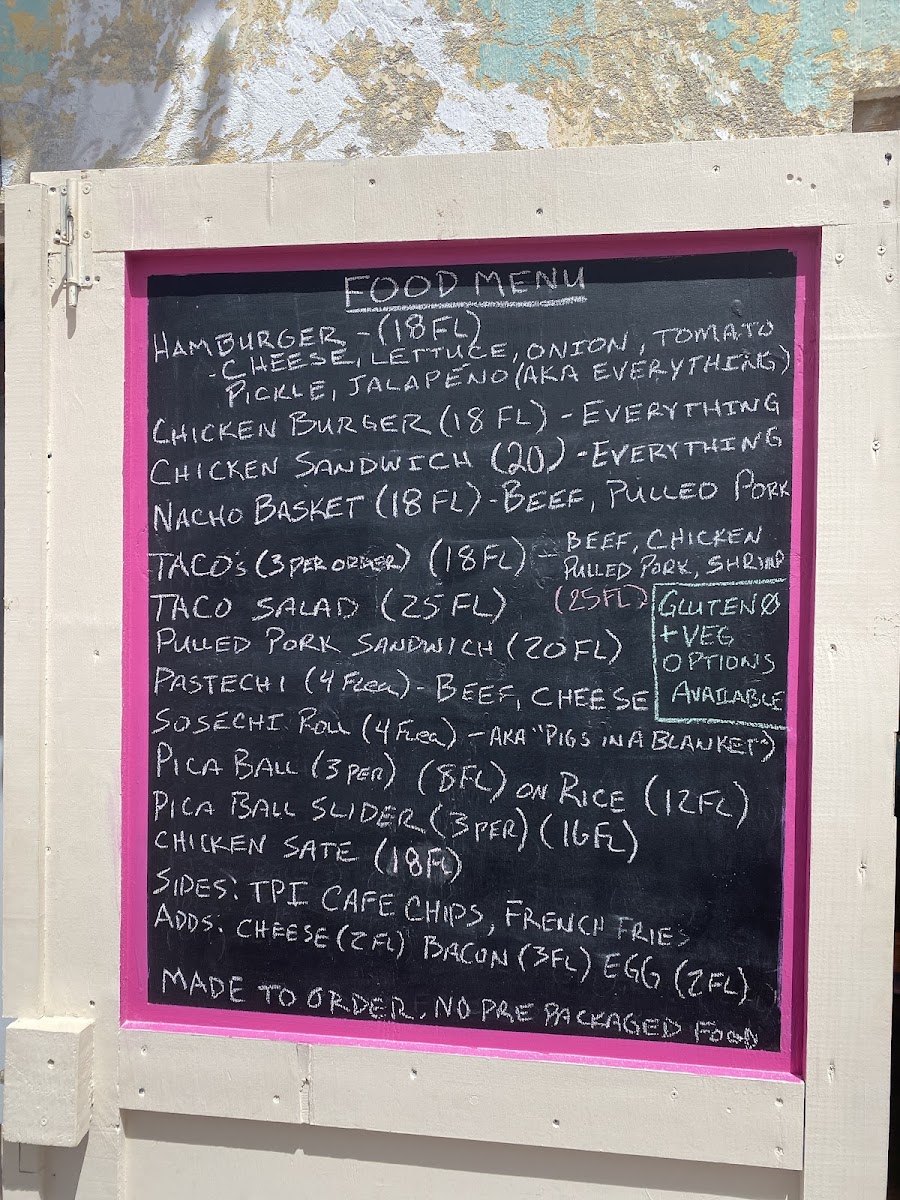 FOOD MENU
HAMBURGER - (18FL)
- CHEESE, LETTUCE, ONION, TOMATO
PICKLE, JALAPEÑO (AKA EVERYTHING)
CHICKEN BURGER (18 FL) - EVERYTHING
CHICKEN SANDWICH (20) - EVERYTHING
NACHO BASKET (18 FL) - BEEF, PULLED PORK
TACO's (3 PER ORDER) (18FL) - BEEF, CHICKEN
PULLED PORK, SHRIMP
(25FL)
TACO SALAD (25 FL)
PULLED PORK SANDWICH (20FL)
PASTECHI (4 FLea) - BEEF, CHEESE
GLUTEN Ø
+ VEG
OPTIONS
AVAILABLE
SOSECHI ROLL (4 FLea) - AKA "PIGS IN A BLANKET")
PICA BALL (3 PER) (8FL) ON RICE (12FL)
PICA BALL SLIDER (3 PER) (16FL)
CHICKEN SATE (18FL)
SIDES: TPI CAFE CHIPS, FRENCH FRIES
ADDS: CHEESE (2FL) BACON (3FL) EGG (2FL)
MADE TO ORDER. NO PRE PACKAGED FOOD